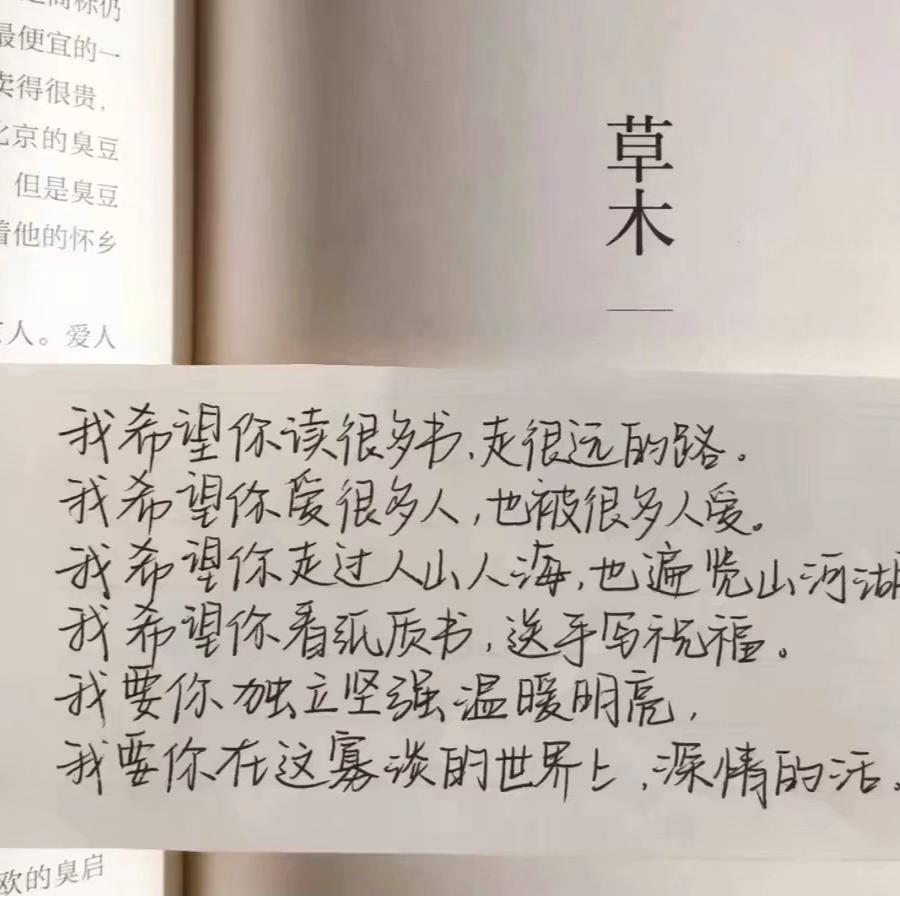 最便宜的一
卖得很贵，
北京的臭豆
但是臭豆
着他的怀乡
人。爱人
草木
我希望你读很多书，走很远的路。
我希望你爱很多人，也被很多人爱。
我希望你走过人山人海，也遍览山河湖
我希望你看纸质书，送手写祝福。
我要你独立坚强温暖明亮，
我要你在这寡淡的世界上，深情的活。
欧的臭启